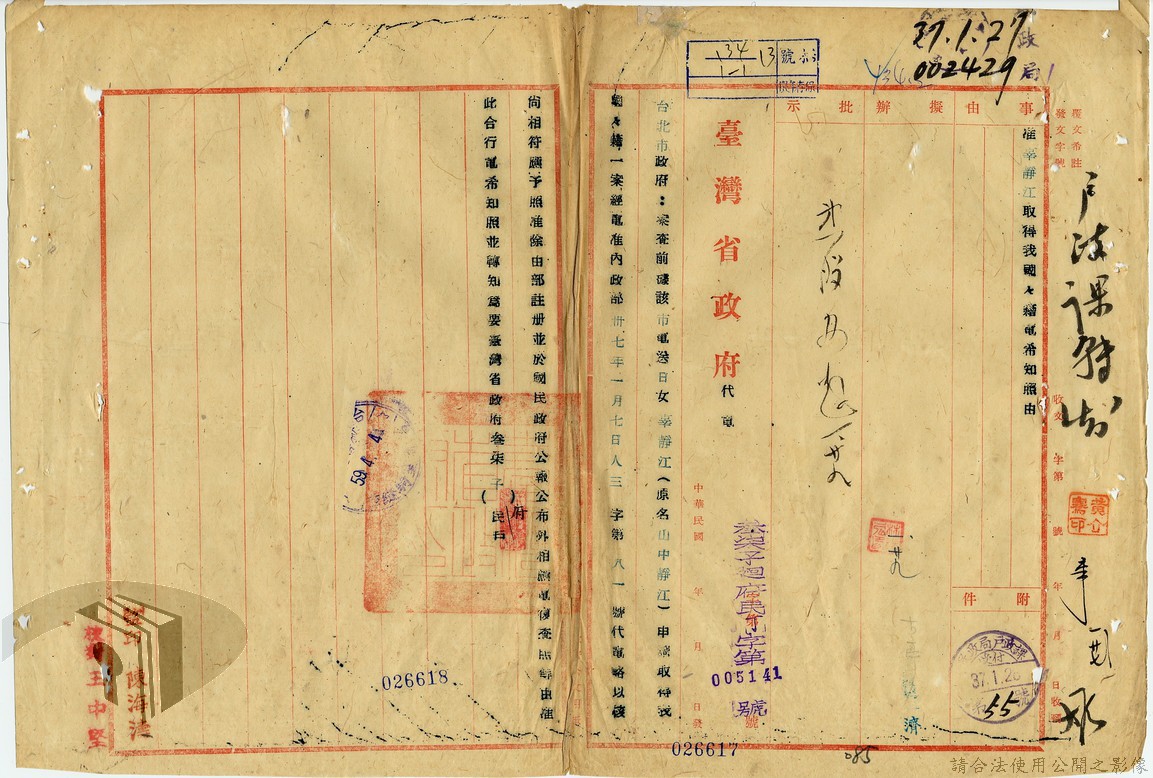 37.1.27
政局
002429
134
1-1
13
號
事由
擬辦
批示
附件
准辜靜江取得我國々籍電希知照由
覆文希註
發文字號
收文
字第
號
年
月
日收到
臺灣省政府代電
中華民國
年
月
日發
叁柒子迴府民字第
005141
號
台北市政府：案查前據該市電送日女辜靜江（原名山中靜江）申請取得我
國々籍一案經電准內政部卅七年一月七日人三字第八一號代電略以該
尚相符應予照准除由部註册並於國民政府公報公布外相應電復查照等由准
此合行電希知照並轉知為要臺灣省政府叁柒子（　）府民戶
59.4.4
37.1.28
55
監印陳海涇
校對王中堅
026618
026617
085
請合法使用公開之影像